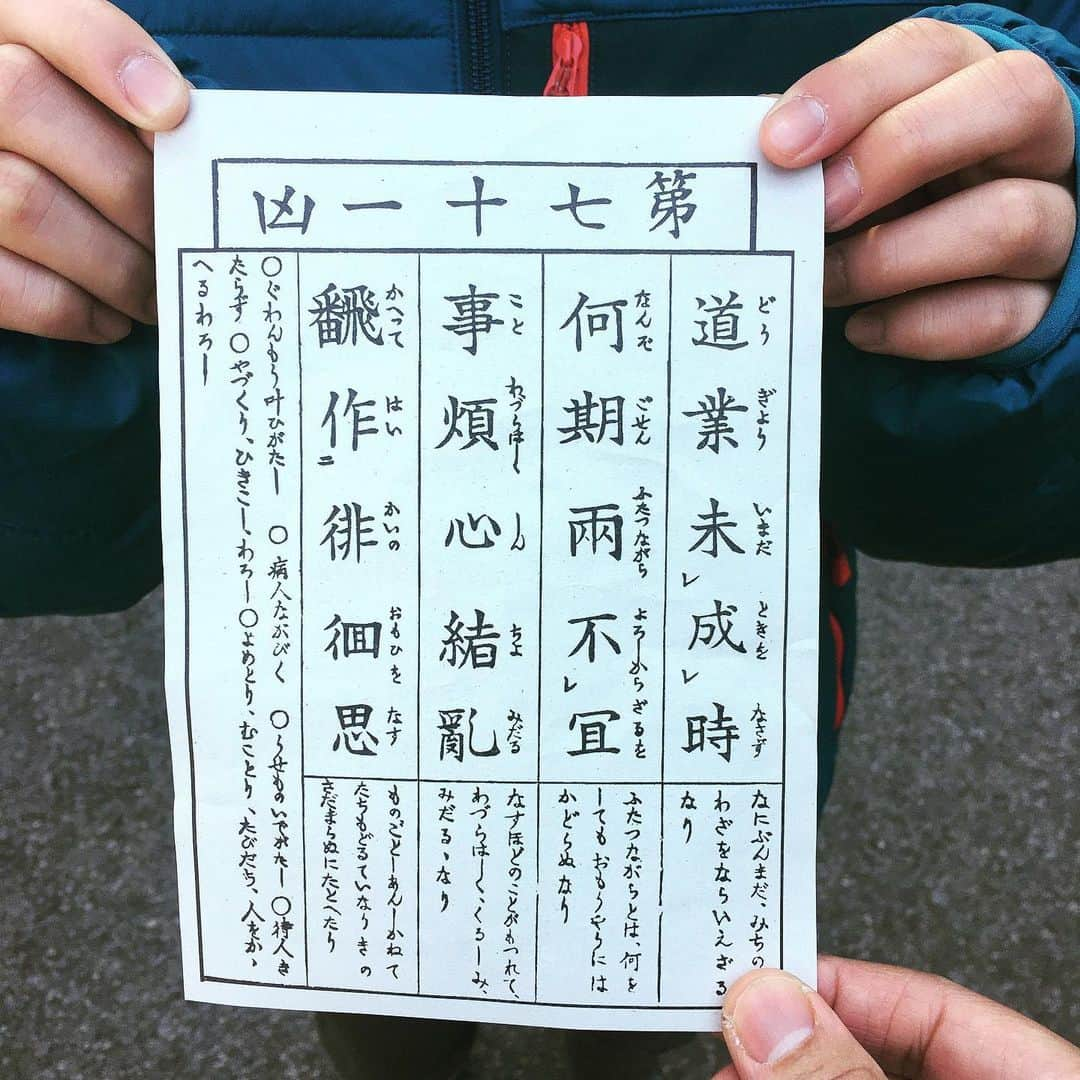 第七十一凶
道業未レ成レ時
どう ぎよう いまだ ときを なさず
なにぶんまだ、みちの
わざをならいえざる
なり
何期兩不レ冝
なんぞ ごせん ふたつながら よろしからざるを
ふたつながらとは、何を
してもおもうやうには
かどらぬなり
事煩心緒亂
こと わづらはしく しん ちよ みだる
なすほどのことがもつれて、
わづらはしく、くるしみ、
みだるゝなり
飜作二徘徊思
かへつて はい かいの おもひを なす
ものごとしあんしかねて
たちもどるていなりきの
さだまらぬにたとへたり
○ぐわんもう叶ひがたし ○病人ながびく ○うせものいでがたし ○待人き
たらず ○やづくり、ひきこし、わろし ○よめとり、むことり、たびだち、人をかゝ
へるわろし